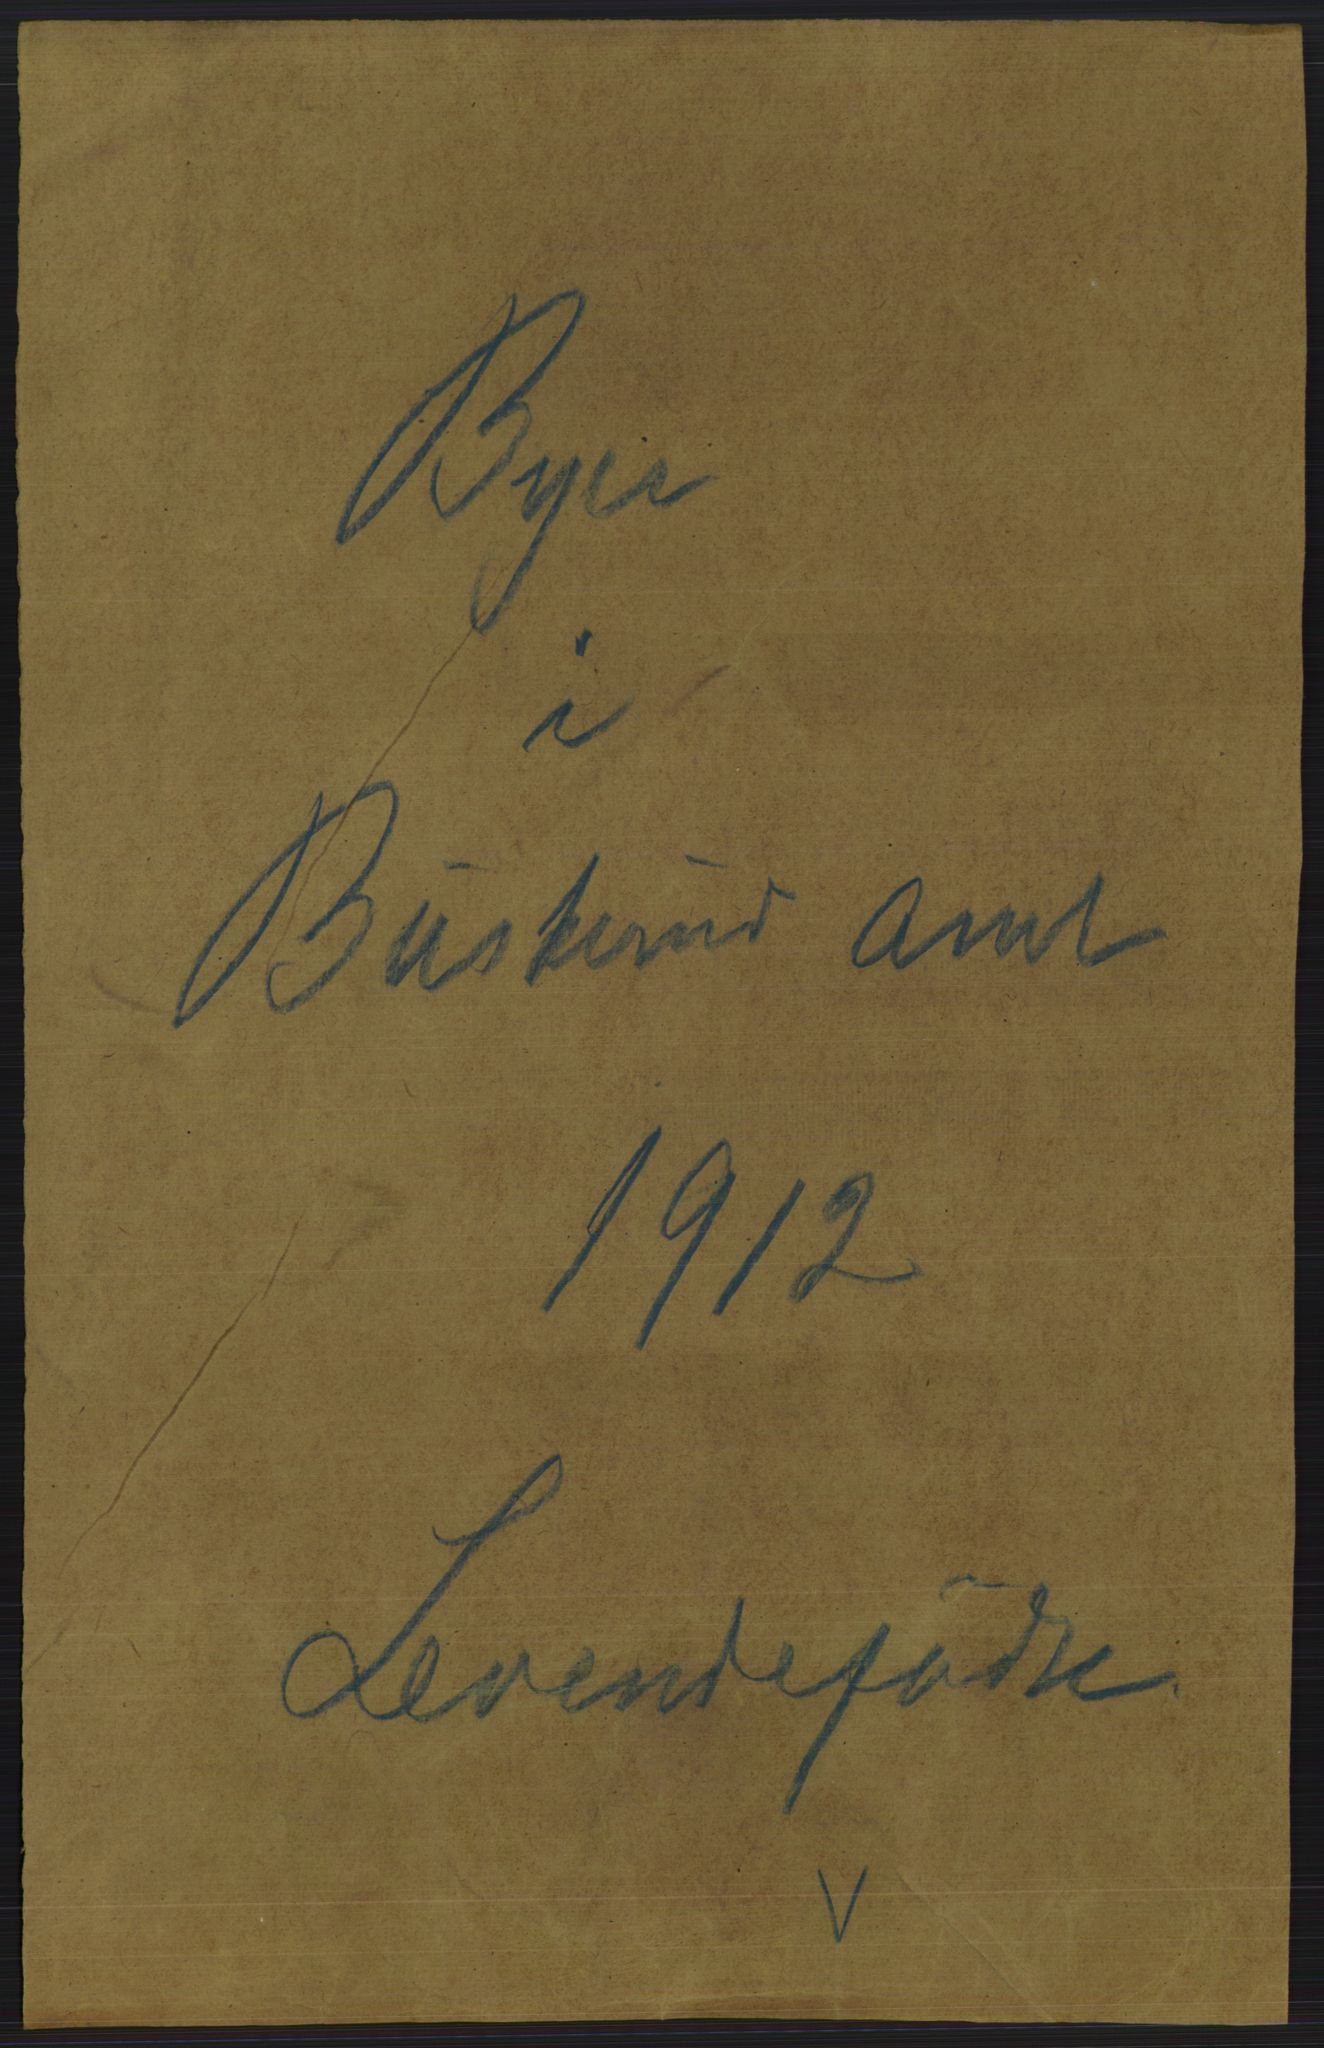 Byer
i
Buskerud amt
1912
Levendefödte
V